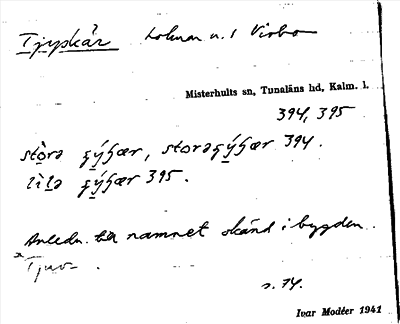 Tjyskär holmar n. f Virbo
Misterhults sn, Tunaläns hd, Kalm. l.
394, 395
storə ʂýʂær, storəʂýʂær 394.
lilə ʂýʂær 395.
Anledn. till namnet okänd i bygden.
*Tjuv- .
s. 74.
Ivar Modéer 1941